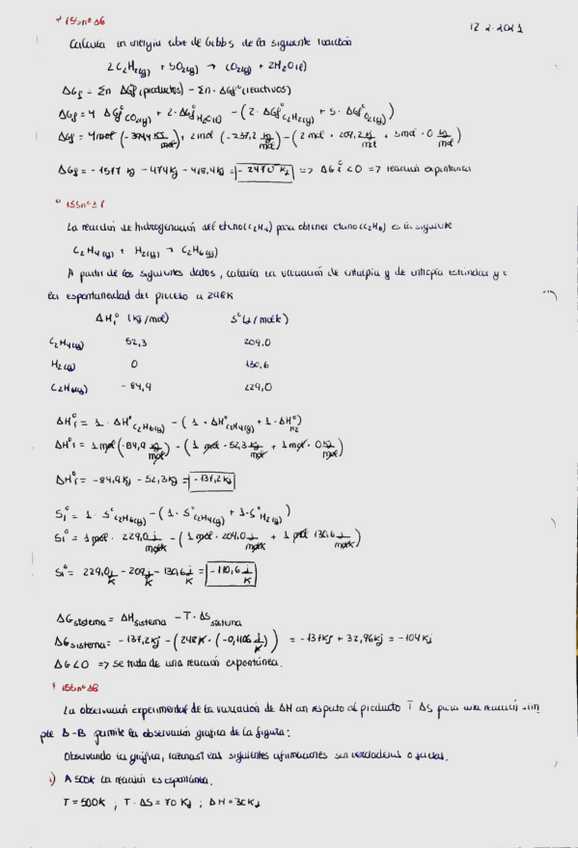 155 nº 36
12-2-2021
Calcula la energía libre de Gibbs de la siguiente reacción
2C₂H₂(g) + 5O₂(g) → CO₂(g) + 2H₂O(l)
ΔGf = Σn ΔGf°(productos) - Σn · ΔGf°(reactivos)
ΔGf = 4 ΔGf°CO₂(g) + 2·ΔGf°H₂O(l) - (2·ΔGf°C₂H₂(g) + 5·ΔGf°O₂(g))
ΔGf = 4mol (-394,4 kJ/mol) + 2mol (-237,2 kJ/mol) - (2 mol · 209,2 kJ/mol + 5mol · 0 kJ/mol)
ΔGf = -1577 kJ - 474kJ - 418,4kJ = -2470 kJ => ΔG°<0 => reacción espontánea
155 nº 37
La reacción de hidrogenación del eteno (C₂H₄) para obtener etano (C₂H₆) es la siguiente
C₂H₄(g) + H₂(g) → C₂H₆(g)
A partir de los siguientes datos, calcula la variación de entalpía y de entropía estándar y
la espontaneidad del proceso a 298K
ΔH°f (kJ/mol) S°(J/molK)
C₂H₄(g) 52,3 209,0
H₂(g) 0 130,6
C₂H₆(g) -84,9 229,0
ΔH° = 1·ΔH°C₂H₆(g) - (1·ΔH°C₂H₄(g) + 1·ΔH°H₂)
ΔH° = 1mol (-84,9 kJ/mol) - (1 mol · 52,3 kJ/mol + 1mol · 0 kJ/mol)
ΔH° = -84,9kJ - 52,3kJ = -137,2 kJ
S° = 1·S°C₂H₆(g) - (1·S°C₂H₄(g) + 1·S°H₂(g))
S° = 1mol · 229,0 J/molK - (1 mol · 209,0 J/molK + 1 mol 130,6 J/molK)
S° = 229,0 J/K - 209 J/K - 130,6 J/K = -110,6 J/K
ΔGsistema = ΔHsistema - T·ΔSsistema
ΔGsistema = -137,2kJ - (298K · (-0,1106 J/K)) = -137kJ + 32,96kJ = -104kJ
ΔG<0 => se trata de una reacción espontánea.
155 nº 38
La observación experimental de la variación de ΔH con respecto al producto T ΔS para una reacción sim
ple A-B permite la observación gráfica de la figura:
Observando la gráfica, razona si las siguientes afirmaciones son verdaderas o falsas.
A 500K la reacción es espontánea.
T = 500K ; T·ΔS = 70 kJ ; ΔH = 30kJ